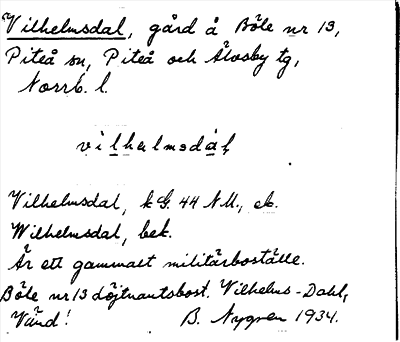 Vilhelmsdal, gård å Böle nr 13,
Piteå sn, Piteå och Älvsby tg,
Norrb. l.
vilhelmsdál,
Vilhelmsdal, k G. 44 N.V., ek.
Wilhelmsdal, bek.
Är ett gammalt militärboställe.
Böle nr 13 löjtnantsbost. Vilhelms-Dahl,
Vänd! B. Nygren 1934.